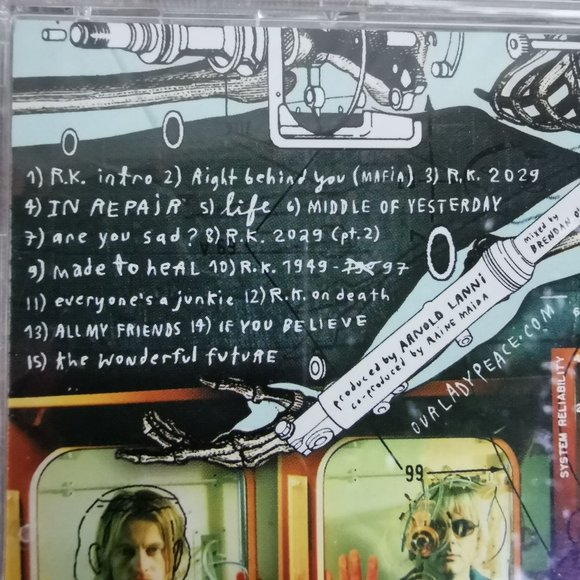 1) R.K. intro 2) Right behind you (MAFIA) 3) R.K. 2029
4) IN REPAIR 5) life 6) MIDDLE OF YESTERDAY
7) are you sad? 8) R.K. 2029 (pt.2)
9) made to heAL 10) R.K. 1949 - 97
11) everyone's a junkie 12) R.K. on death
13) ALL MY FRIENDS 14) IF YOU BELIEVE
15) the wonderful fuTURE
produced by ARNOLD LANNI
co-produced by RAINE MAIDA
mixed by
BRENDAN
OURLADYPEACE.COM
SYSTEM RELIABILITY
99